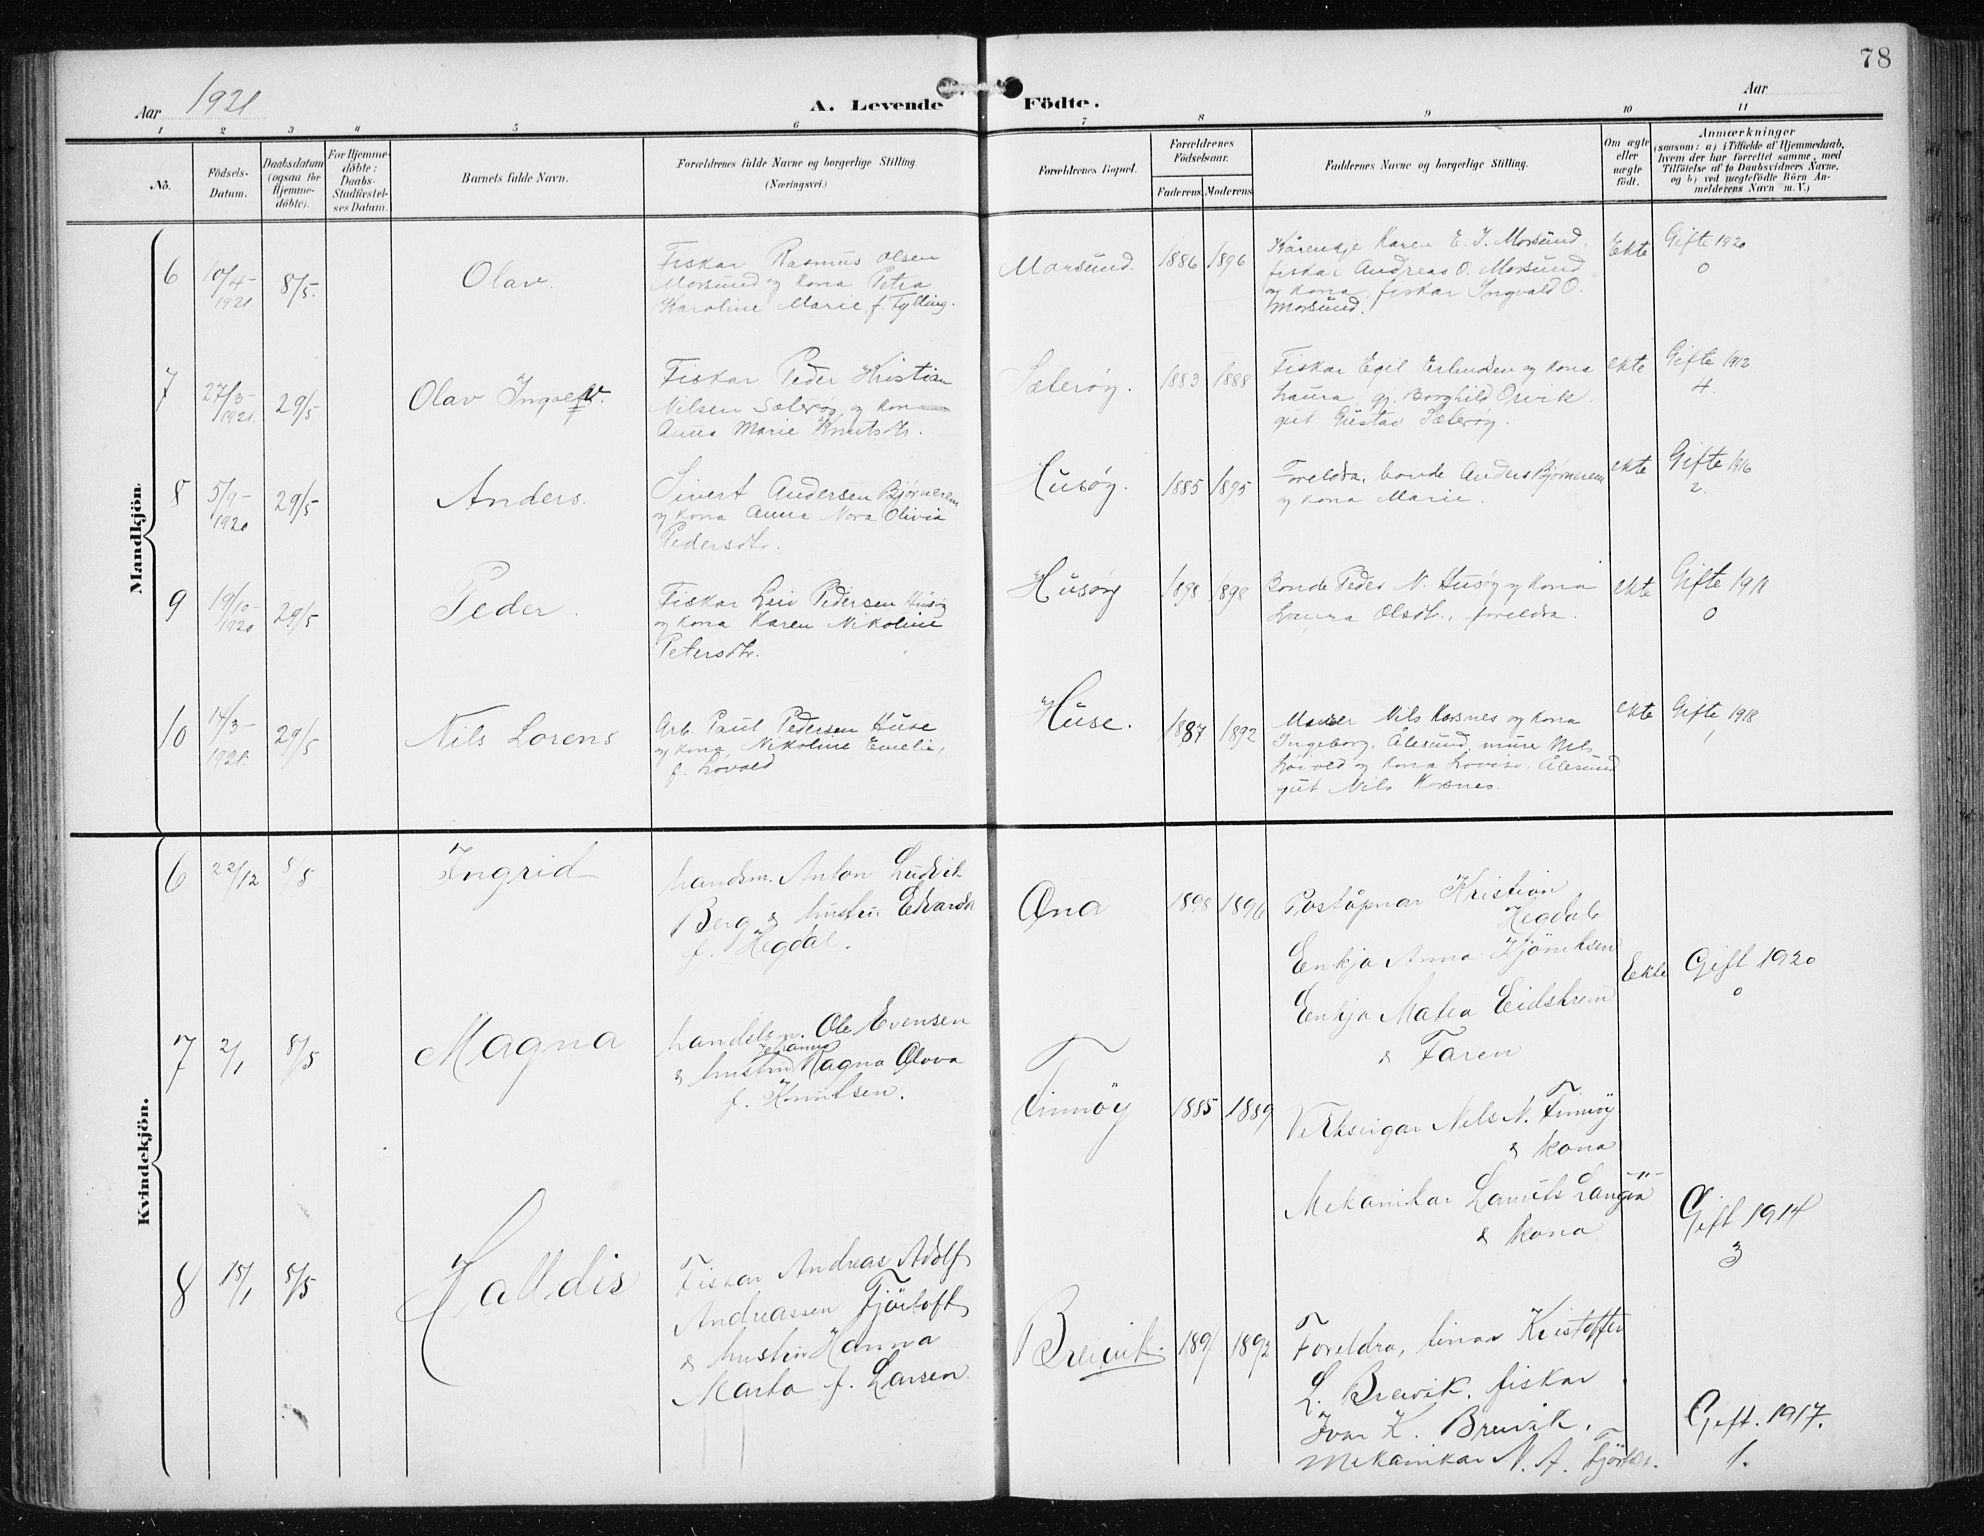 78
Aar 1921
A. Levende Födte.
Aar
1 2 3 4 5 6 7 8 9 10 11
No.
Födsels-Datum.
Daabsdatum (ogsaa for Hjemme-döbte).
For Hjemme-döbte: Daabs-Stadfæstel-ses Datum.
Barnets fulde Navn.
Forældrenes fulde Navne og borgerlige Stilling.
(Næringsvei.)
Forældrenes Bopæl.
Forældrenes Födselsaar.
Faderens Moderens
Faddernes Navne og borgerlige Stilling.
Om ægte eller uægte födt.
Anmærkninger
(saasom: a) i Tilfælde af Hjemmedaab,
hvem der har forrettet samme, med
Tilföielse af to Daabsvidners Navne,
og b) ved uægtefödte Börn An-
melderens Navn m. V.)
Mandkjön.
6 10/4-1921 8/5. Olav.
Fiskar Rasmus Olsen
Morsund og kona Petra
Karoline Marie f. Tylling.
Morsund. 1886 1896
Karen E. I. Morsund,
fiskar Andreas O. Morsund
og kona, fiskar Ingvald O.
Morsund.
Ekte Gifte 1920
0
7 27/3-1921. 29/5 Olav Ingolf
Fiskar Peder Kristian
Nilsen Sæterøy og kona
Anna Marie Knutsdtr.
Sæterøy. 1883 1888
Fiskar Egil Erlandsen og kona
Laura, gj. Borghild Orvik
gut Gustav Sæterøy.
ekte Gifte 1912
4
8 5/9-1920 29/5 Anders.
Sivert Andersen Bjørnerem
og kona Anna Nora Olivia
Pedersdtr.
Husøy. 1885 1895
Foreldra, bonde Anders Bjørnerem
og kona Marie.
ekte Gifte 1916
2.
9 19/10-1920 29/5 Peder.
Fiskar Leiv Pedersen Husøy
og kona Karen Nikoline
Petersdtr.
Husøy 1898 1898
Bonde Peder N. Husøy og kona
Laura Olsdtr., foreldra.
ekte Gifte 1918
0
10 14/3-1921. 29/5 Nils Lorens
Arb. Paul Pedersen Huse
og kona Nikoline Emelie,
f. Lovold
Huse. 1887 1892
Nils Korsnes og kona
Ingeborg, Ålesund, Nils
og kona Lovise, Ålesund
gut Nils Korsnes.
ekte Gifte 1918
1
Kvindekjön.
6 22/12 8/5 Ingrid
Handsm. Anton Ludvik
Berg & hustru Edvarda
f. Hegdal.
Ona 1898 1896
Poståpnar Kristian
Hegdal
Enkja Anna
Enkja Matea Eidskrem
& Faren
Ekte Gift 1920
0
7 2/1 8/5 Magna
Handelsm. Ole Evensen
Johanna
& hustru Magna Olova
f. Knutsen.
Finnøy 1885 1889
Verkseigar Nils N. Finnøy
& kona
Mekanikar
& kona
-"-
Gift 1914
3
8 15/1 8/5 Halldis
Fiskar Andreas Adolf
Andreassen Fjörtoft
& hustru Hanna
Marta f. Larsen.
Breivik. 1891 1892
Foreldra, Kristoffer
L. Breivik, fiskar
Ivar K. Breivik,
Mekanikar N. A.
Gift. 1917.
1.